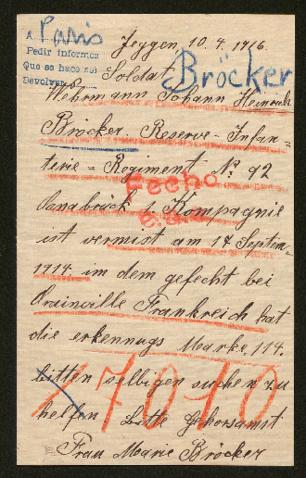 A Paris
Pedir informes
Que se hace sei
Devolver
Jeggen, 10.4.1916.
Soldat,
Bröcker
Wehrmann Johann Heinrich
Bröcker. Reserve-Infan-
terie-Regiment No 92
Fecho
Osnabrück Kompagnie
ist vermist am 14 Septem
1914 im dem gefecht bei
Orainville Frankreich hat
die erkennugs Marke, 114.
bitten selbigen suchen zu
17010
helfen Bitte Gehorsamst
Frau Marie Bröcker